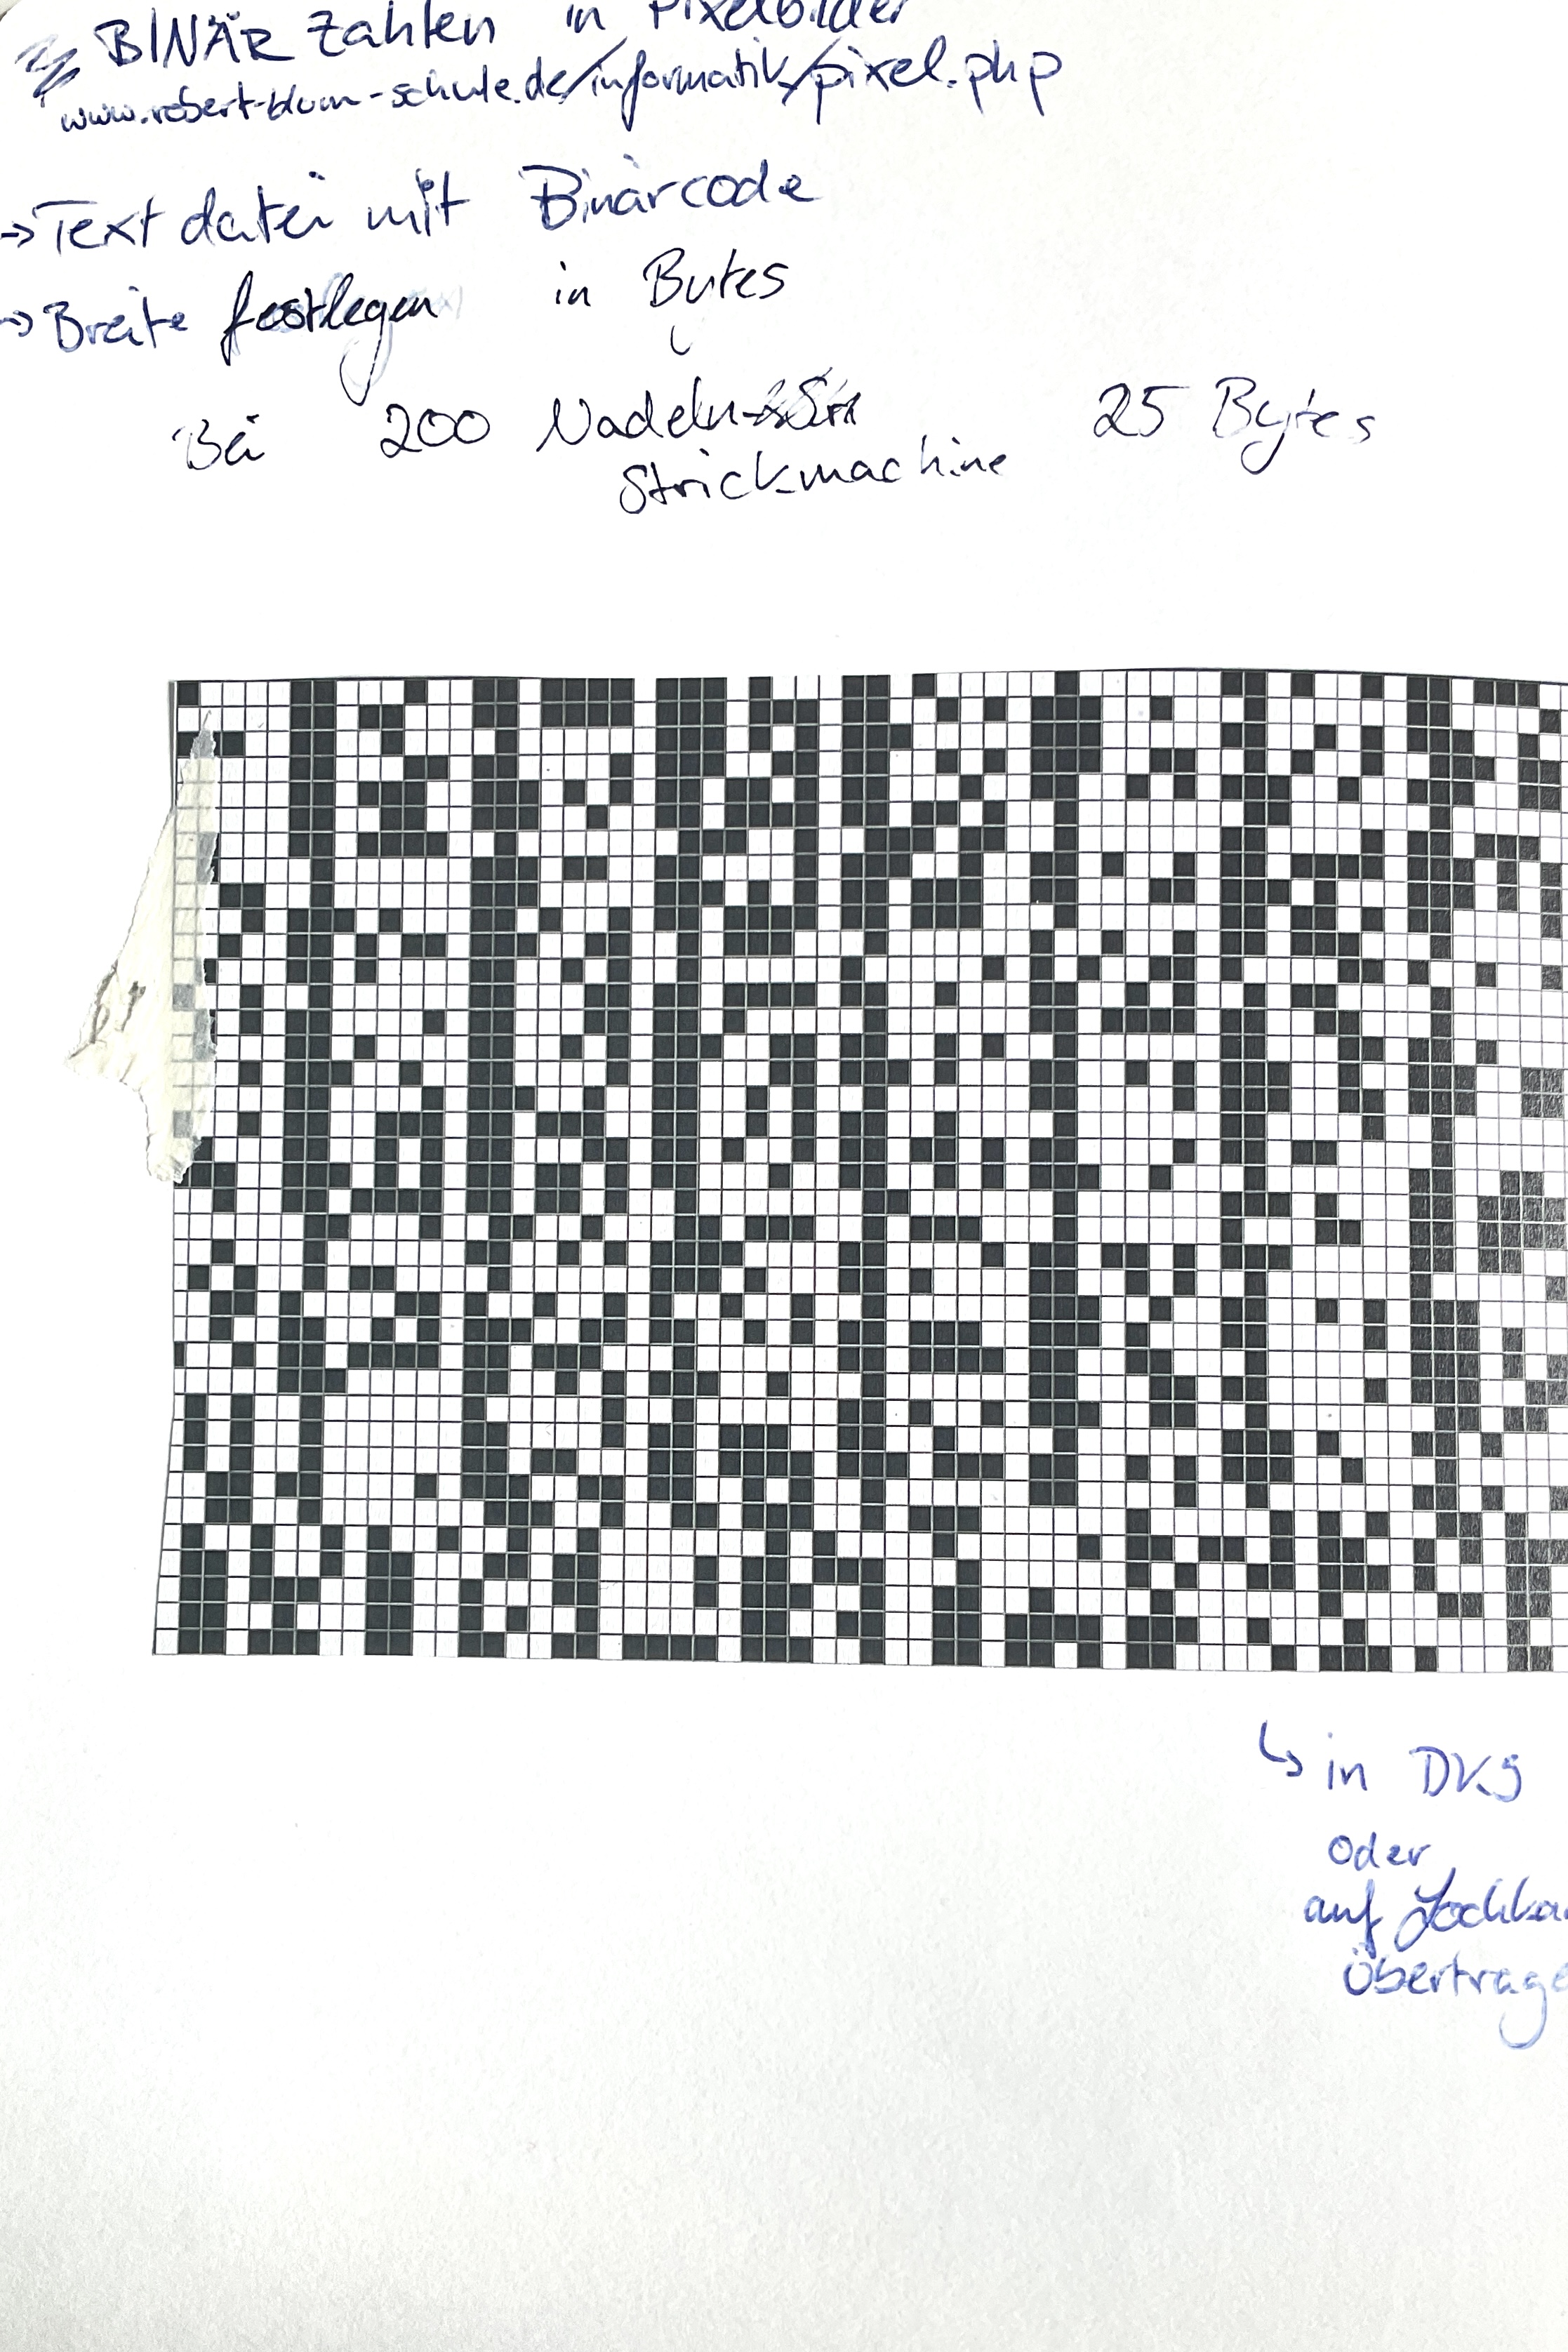 BINÄR Zahlen in Pixelbilder
www.robert-blum-schule.de/informatik/pixel.php
→ Textdatei mit Binärcode
→ Breite festlegen in Bytes
Bei 200 Nadeln- 25 Bytes
Strickmachine
↳ in DK9
oder
auf Lochka
übertrage